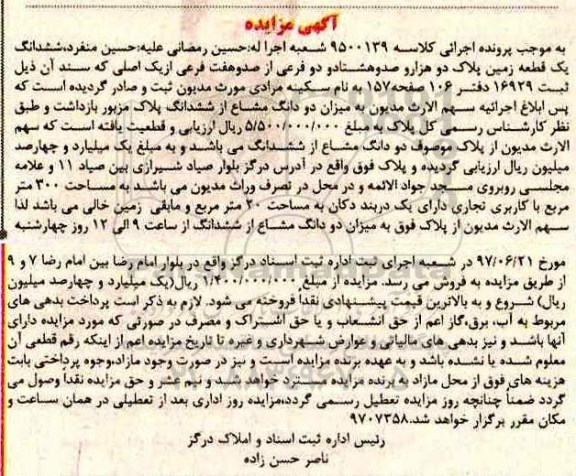 آگهی مزایده
به موجب پرونده اجرائی کلاسه ۹۵۰۰۱۳۹ شعبه اجرا له:حسین رمضانی علیه:حسین منفرد،ششدانگ
یک قطعه زمین پلاک دو هزارو صدوهشتادو دو فرعی از صدوهفت فرعی ازیک اصلی که سند آن ذیل
ثبت ۱۶۹۲۹ دفتر ۱۰۶ صفحه۱۵۷ به نام سکینه مرادی مورث مدیون ثبت و صادر گردیده است که
پس ابلاغ اجرائیه سهم الارث مدیون به میزان دو دانگ مشاع از ششدانگ پلاک مزبور بازداشت و طبق
نظر کارشناس رسمی کل پلاک به مبلغ ۵/۵۰۰/۰۰۰/۰۰۰ ریال ارزیابی و قطعیت یافته است که سهم
الارث مدیون از پلاک موصوف دو دانگ مشاع از ششدانگ می باشد و به مبلغ یک میلیارد و چهارصد
میلیون ریال ارزیابی گردیده و پلاک فوق واقع در آدرس درگز بلوار صیاد شیرازی بین صیاد ۱۱ و علامه
مجلسی روبروی مسجد جواد الائمه و در محل در تصرف وراث مدیون می باشد به مساحت ۳۰۰ متر
مربع با کاربری تجاری دارای یک دربند دکان به مساحت ۲۰ متر مربع و مابقی زمین خالی می باشد لذا
سهم الارث مدیون از پلاک فوق به میزان دو دانگ مشاع از ششدانگ از ساعت ۹ الی ۱۲ روز چهارشنبه
مورخ ۹۷/۰۶/۲۱ در شعبه اجرای ثبت اداره ثبت اسناد درگز واقع در بلوار امام رضا بین امام رضا ۷ و ۹
از طریق مزایده به فروش می رسد. مزایده از مبلغ ۱/۴۰۰/۰۰۰/۰۰۰ ریال(یک میلیارد و چهارصد میلیون
ریال) شروع و به بالاترین قیمت پیشنهادی نقداً فروخته می شود. لازم به ذکر است پرداخت بدهی های
مربوط به آب، برق،گاز اعم از حق انشعاب و یا حق اشتراک و مصرف در صورتی که مورد مزایده دارای
آنها باشد و نیز بدهی های مالیاتی و عوارض شهرداری و غیره تا تاریخ مزایده اعم از اینکه رقم قطعی آن
معلوم شده یا نشده باشد و به عهده برنده مزایده است و نیز در صورت وجود مازاد،وجوه پرداختی بابت
هزینه های فوق از محل مازاد به برنده مزایده مسترد خواهد شد و نیم عشر و حق مزایده نقداً وصول می
گردد ضمناً چنانچه روز مزایده تعطیل رسمی گردد،مزایده روز اداری بعد از تعطیلی در همان ساعت و
مکان مقرر برگزار خواهد شد.۹۷۰۷۳۵۸
رئیس اداره ثبت اسناد و املاک درگز
ناصر حسن زاده
ParsNamadData